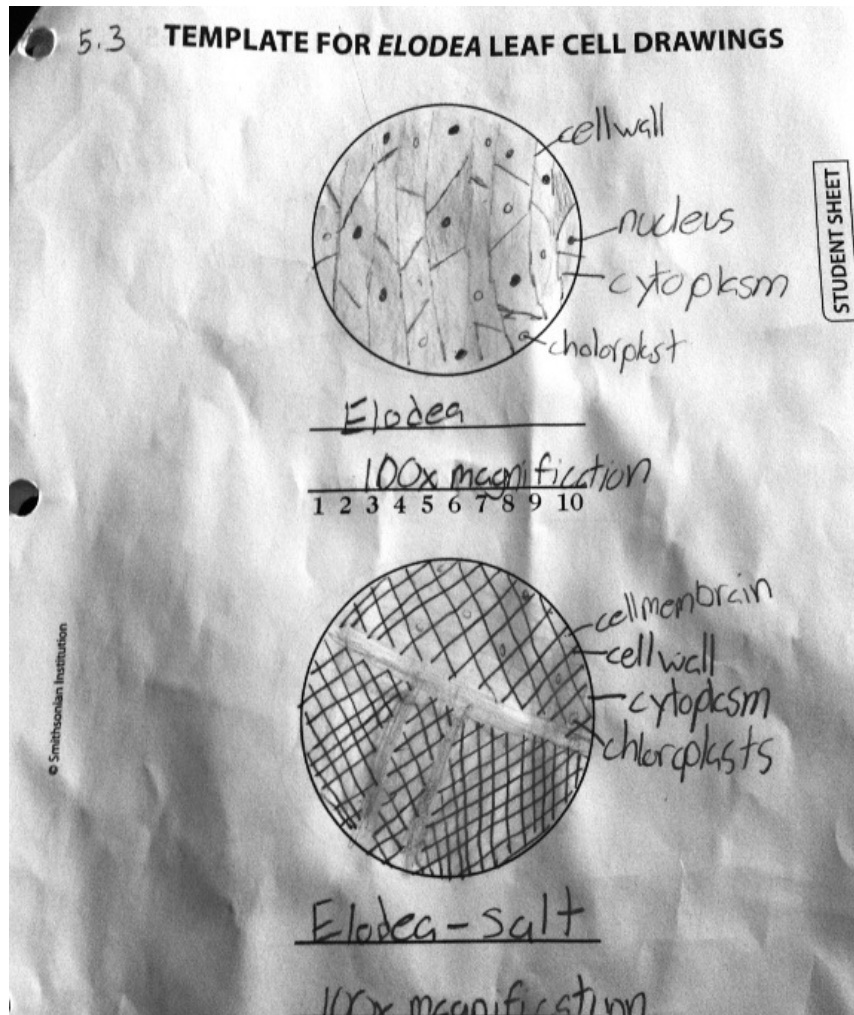 5.3 TEMPLATE FOR ELODEA LEAF CELL DRAWINGS
cellwall
STUDENT SHEET
nucleus
cytoplasm
cholorplast
Elodea
100x magnification
1 2 3 4 5 6 7 8 9 10
cellmembrain
cellwall
cytoplasm
chloroplasts
© Smithsonian Institution
Elodea-salt
100x magnification